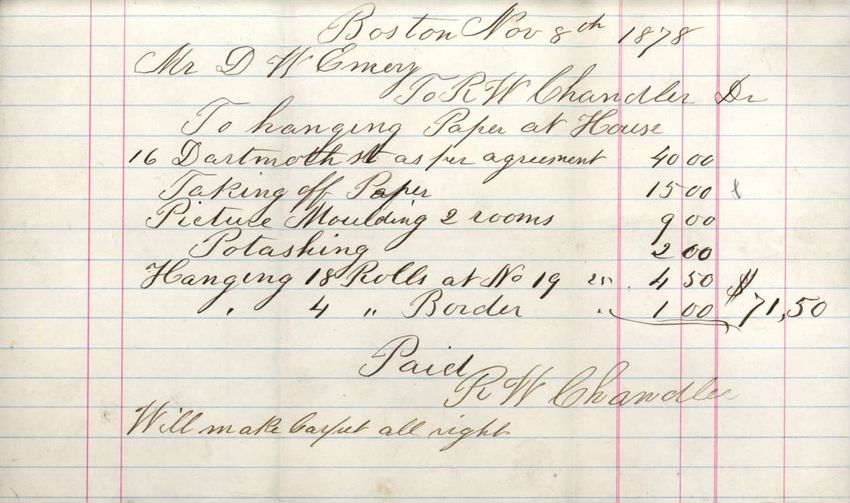 Boston Nov 8th 1878
Mr D W Emery
To R W Chandler Dr
To hanging Paper at House
16 Dartmoth st as per agreement 40 00
Taking off Paper 15 00
Picture Moulding 2 rooms 9 00
Potashing 2 00
Hanging 18 Rolls at No 19 25 4 50
" 4 " Border " 1 00 $71,50
Paid
R W Chandler
Will make Carpet all right